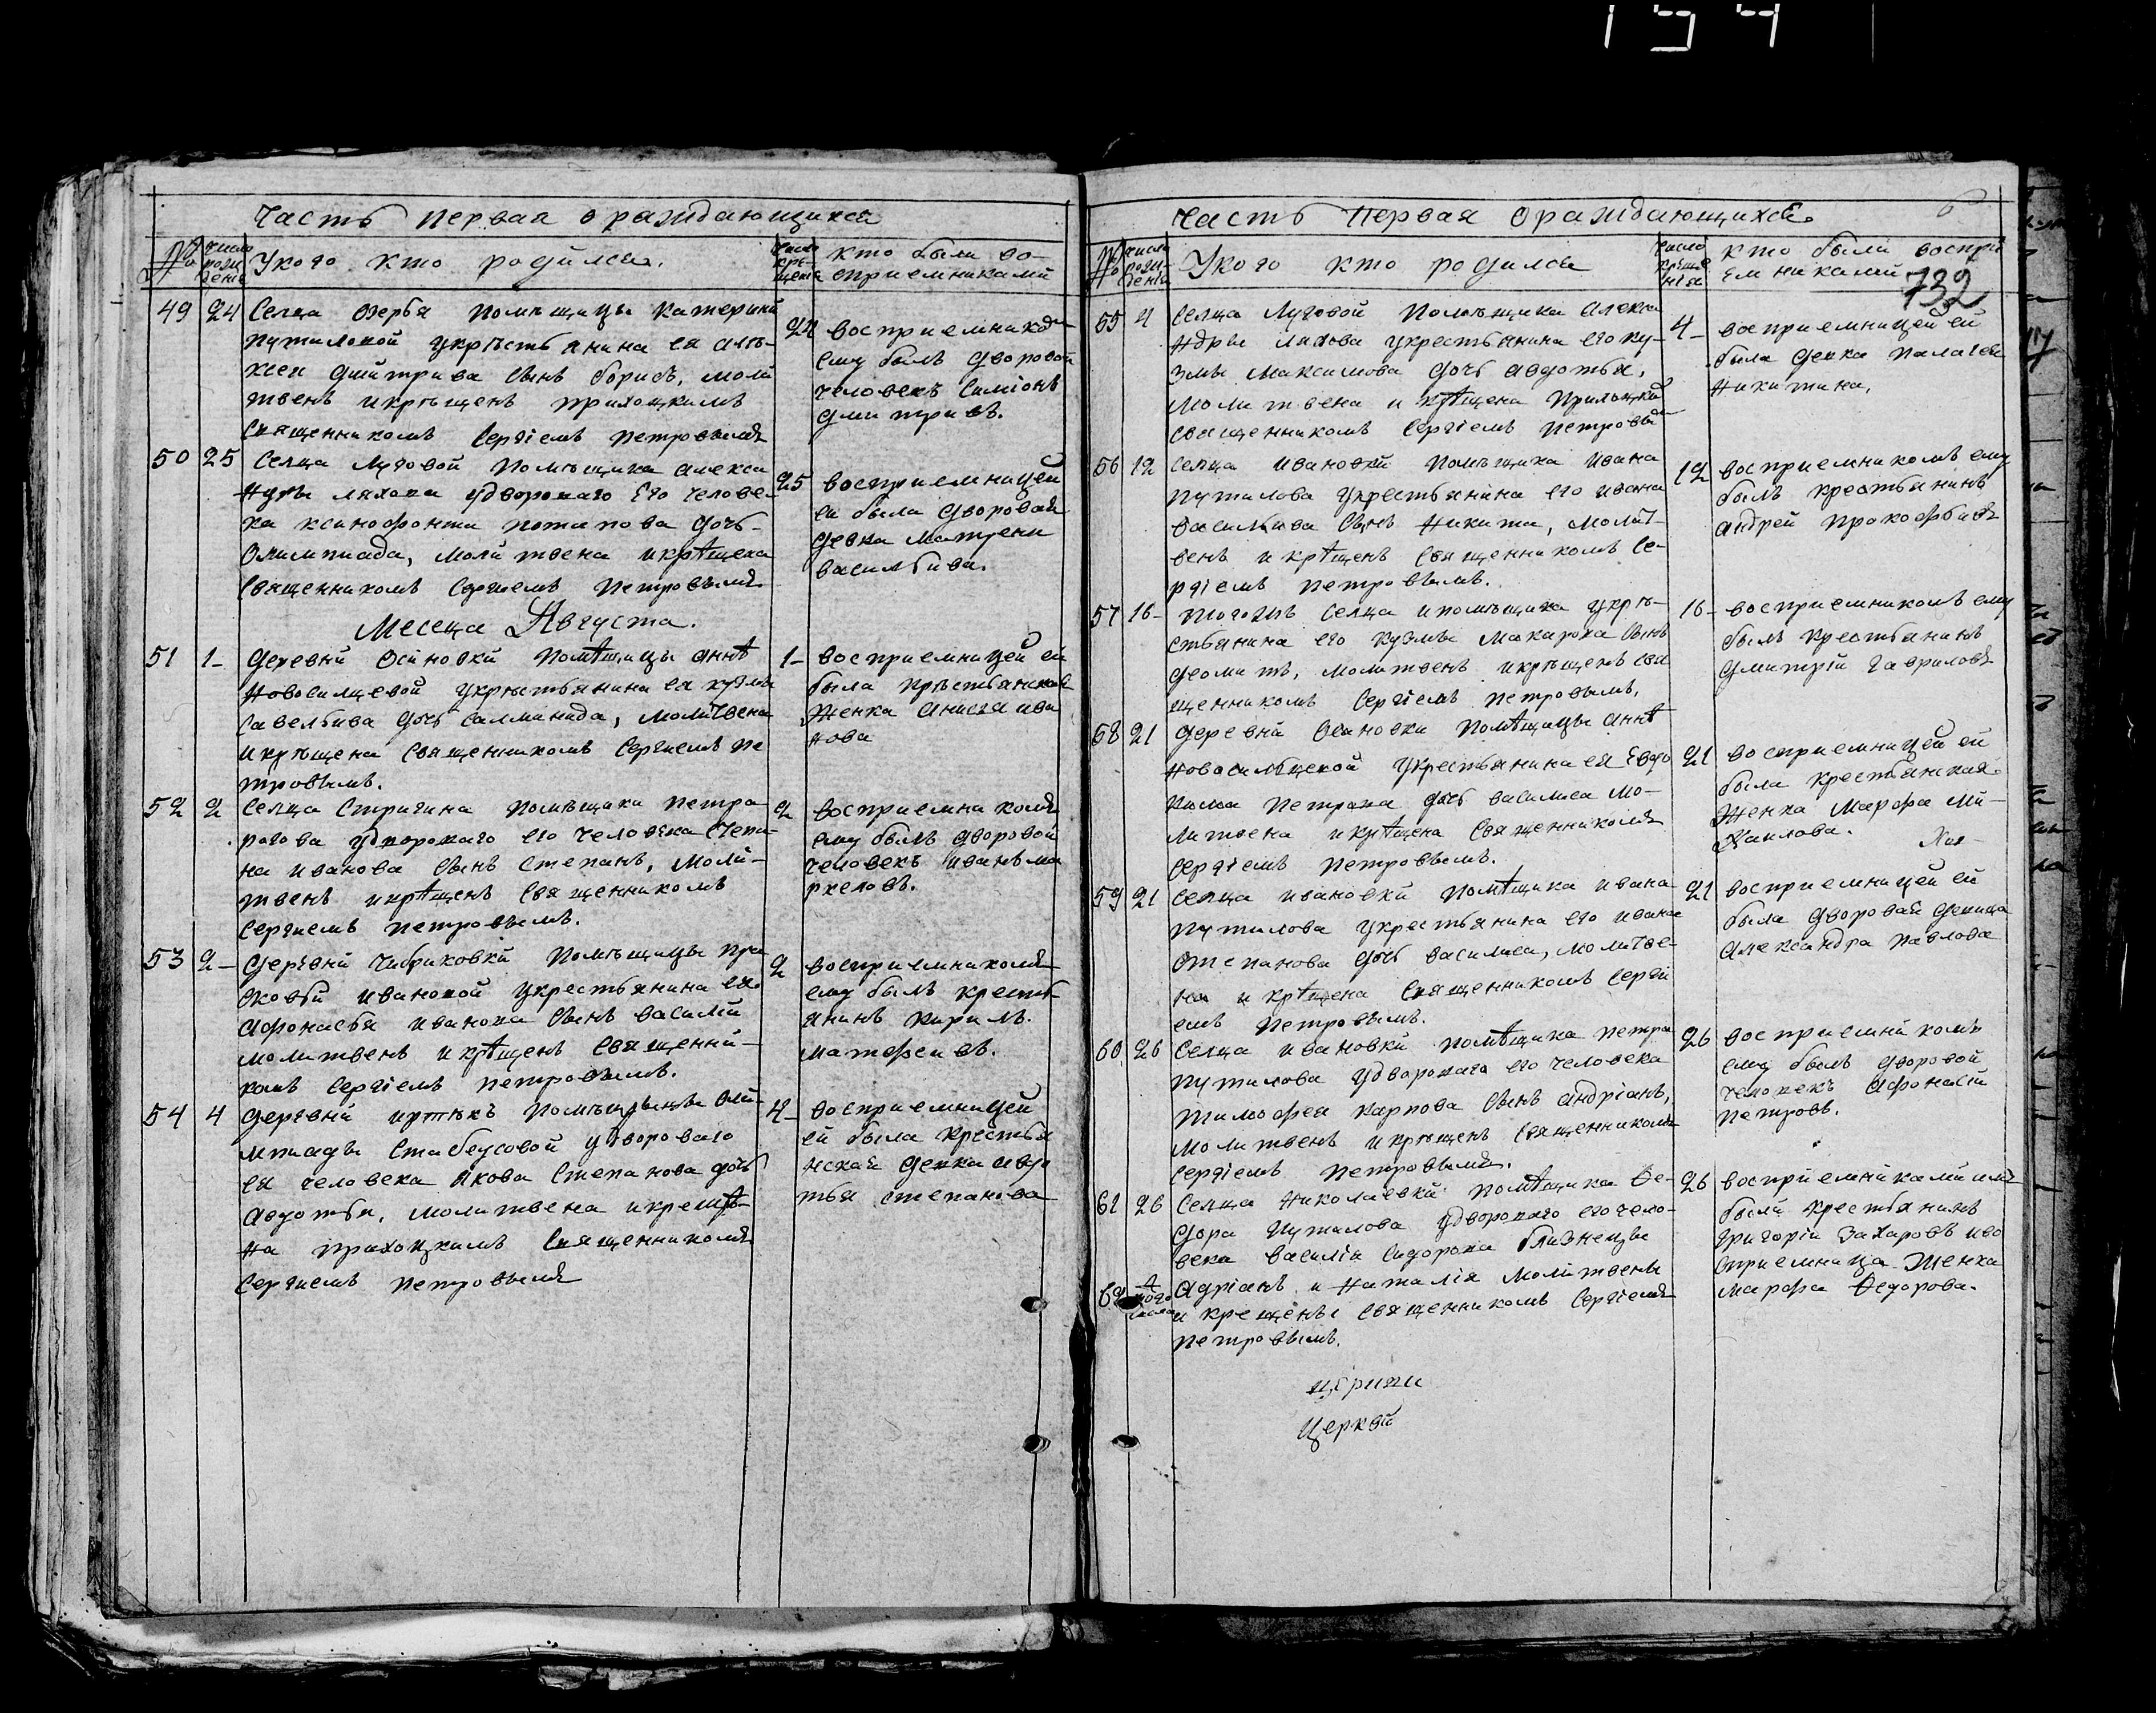 154
Часть первая о раждающихся
№ число рожденія
У кого кто родился.
число крещенія
кто были во-
сприемниками
49 24 Селца Озерья помѣщицы Катерины
Путиловой укрѣстьянина ея алѣ-
ксея дмитрива сынъ борисъ, моли
твенъ икрѣщенъ приходскимъ
священникомъ Сергіемъ Петровымъ
24 восприемникомъ
ему былъ дворовой
человекъ Симіонъ
дмитривъ.
50 25 Селца Луговой помѣщика алекса
ндры ляхова удвороваго Его челове-
ка ксинофонта потапова дочь
Олимпиада, молитвена икрѣщена
священникомъ Сергіемъ Петровымъ
25 восприемницей
ей была дворовая
девка матрена
васильива.
Месеца Августа.
51 1- деревни Осиновки помѣщицы аннѣ
Новосилцевой укрѣстьянина ея кузмы
савельива дочь саломанида, молитвена
икрѣщена священникомъ Сергіемъ Пе
тровымъ.
1- восприемницей ей
была крѣстьянская
женка анисья ива
нова
52 2 Селца Стригина помѣщика петра
рогова удвороваго его человека степа-
на иванова сынъ степанъ, моли-
твенъ икрѣщенъ священникомъ
Сергіемъ петровымъ.
2 восприемникомъ
ему былъ дворовой
человекъ иванъ ма
ркеловъ.
53 2- деревни Чибриковки помѣщицы пра
сковьи ивановой укрестьянина ея
афонасья иванова сынъ василій
молитвенъ икрѣщенъ священни-
комъ Сергіемъ петровымъ.
2 восприемникомъ
ему былъ кресть-
янинъ кирилъ
матфеивъ.
54 4 деревни помѣщицы оли-
мпиады удвороваго
ея человека Якова Степанова дочь
авдотья, молитвена икрещѣ-
на приходскимъ священникомъ
Сергіемъ петровымъ
4- восприемницей
ей была крестья
нская девка авдо
тья степанова
Часть первая о раждающихся.
6
732
№ число рожденія
У кого кто родился
число крещенія
кто были воспри
емниками
55 4 Селца Луговой помѣщика алекса
ндры ляхова укрестьянина его ку-
змы максимова дочь авдотья,
молитвена и крѣщена приходским
священникомъ Сергіемъ петровым
4- восприемницей ей
была девка палагея
никитина,
56 12 Селца ивановки помѣщика ивана
путилова укрестьянина его ивана
васильива сынъ никита, молит-
венъ и крѣщенъ священникомъ Се-
ргіемъ петровымъ.
12 восприемникомъ ему
былъ крестьянинъ
андрей прокофьивъ
57 16- тогожъ селца ипомѣщика укрѣ-
стьянина его кузмы макарова сынъ
деомитъ, молитвенъ икрѣщенъ свя
щенникомъ Сергіемъ петровымъ,
16- восприемникомъ ему
былъ крестьянинъ
дмитрій гавриловъ
58 21 деревни Осиновки помѣщицы аннѣ
новосильцевой укрестьянина ея Евдо
кима Петрова дочь василиса мо-
литвена икрѣщена священникомъ
Сергіемъ петровымъ.
21 восприемницей ей
была крестьянская
женка марфа ми-
хаилова.
59 21 Селца ивановки помѣщика ивана
путилова укрестьянина его ивана
степанова дочь василиса, молитве-
на и крѣщена священникомъ Сергі
емъ петровымъ.
21 восприемницей ей
была дворовая девица
александра павлова
60 26 Селца ивановки помѣщика петра
путилова удвороваго его человека
тимофея карпова сынъ андріанъ,
молитвенъ икрѣщенъ священникомъ
Сергіемъ петровымъ.
26 восприемникомъ
ему былъ дворовой
человекъ афонасій
петровъ.
61 26 Селца николаевки помѣщика Фе-
дора путилова удвороваго его чело-
века василія сидорова близнецы
62 адріанъ и наталія молитвены
и крещены священникомъ Сергіемъ
петровымъ.
26 восприемниками имъ
были крестьянинъ
григорій захаровъ иво
сприемница женка
марфа Федорова.
Церкви